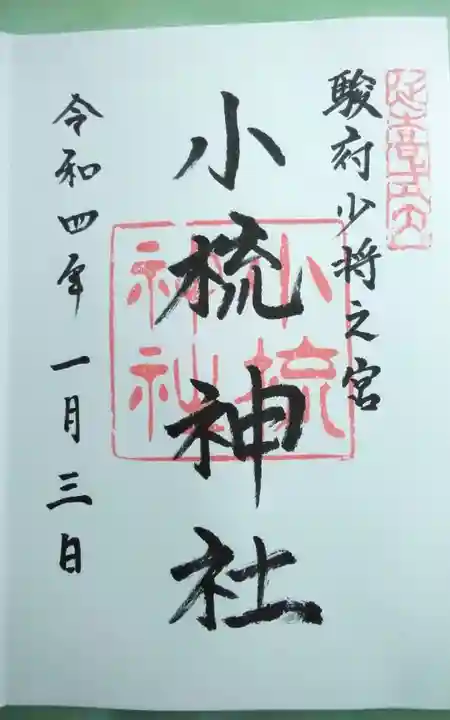 延喜式内
駿府少将之宮
小梳神社
小梳神社
令和四年一月三日